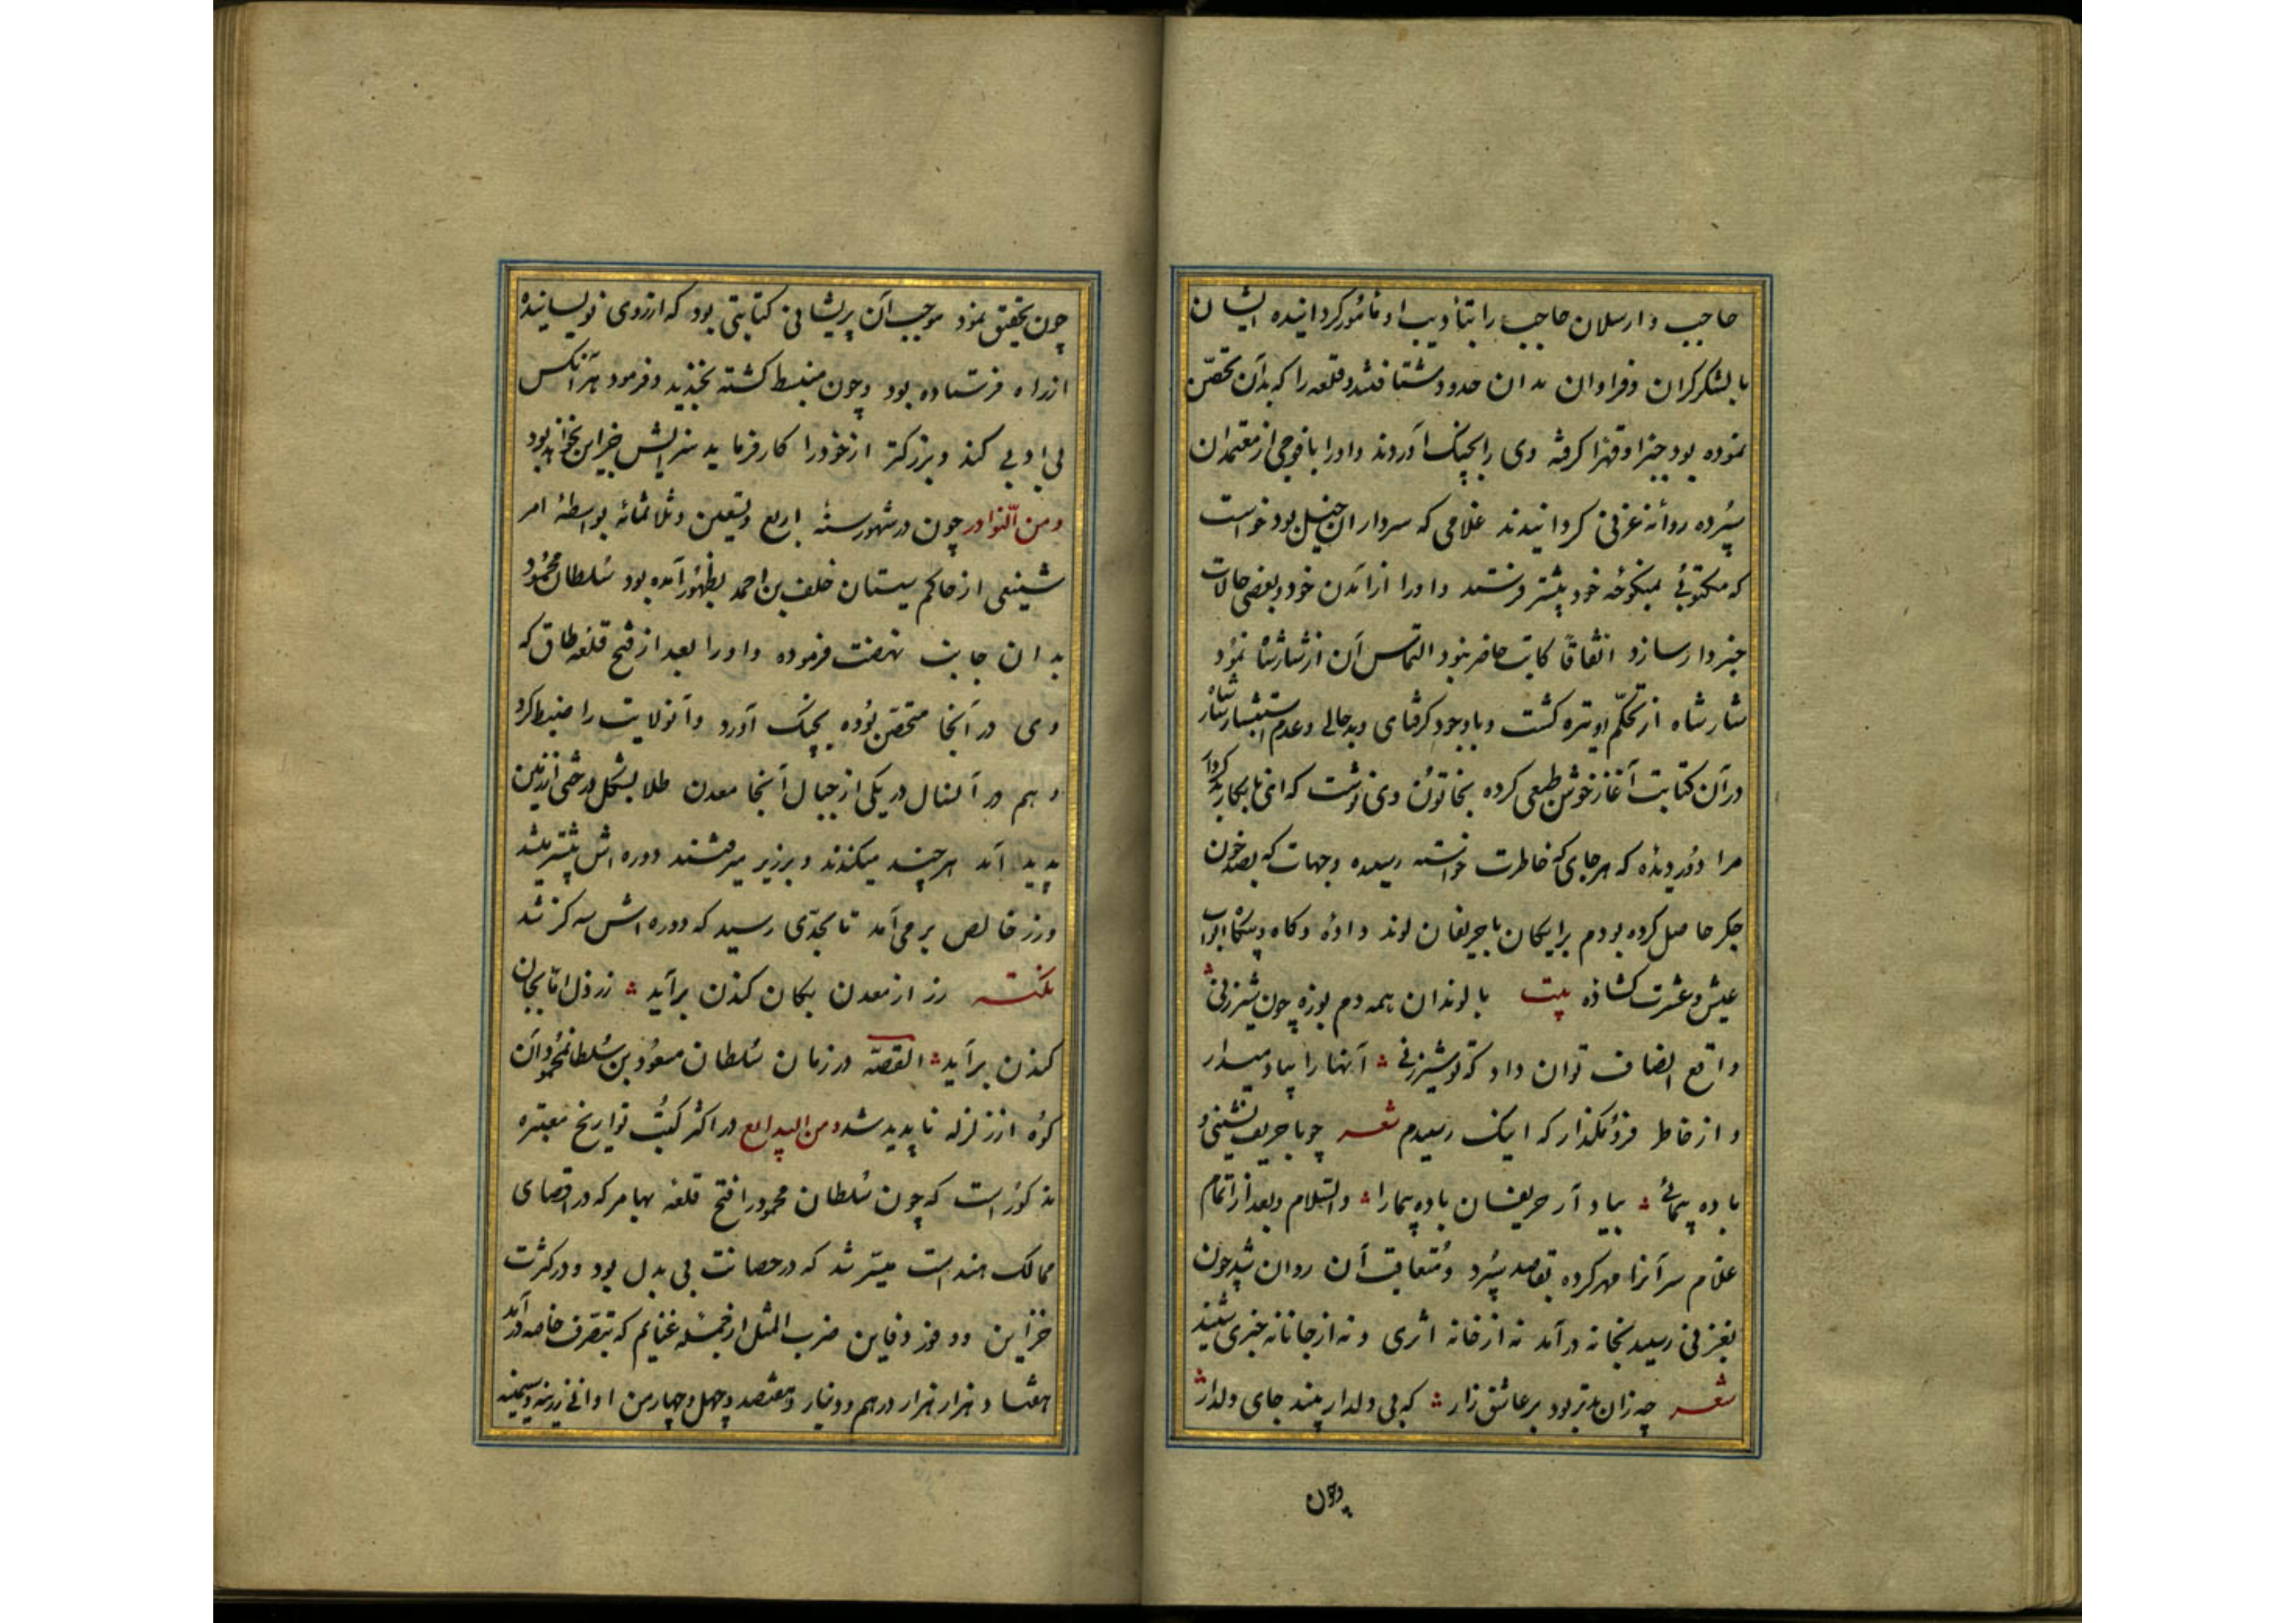 حاجب و ارسلان حاجب را بتأدیب او مأمور کردانیده ایشان
با لشکر کران و فراوان بدان حدود شتافتند و قلعه را که بدان تحصّن
نموده بود جبراً و قهراً کرفته وی را بچنک آوردند و او را با فوجی از معتمدان
سپرده روانهٔ غزنی کردانیدند غلامی که سردار ان خیل بود خواست
که مکتوبی بمنکوحه خود پیشتر فرستد و او را از آمدن خود و بعضی حالات
خبردار سازد اتفاقاً کاتب حاضر نبود التماس آن از شارشاه نمود
شارشاه از تحکّم او تیره کشت و با وجود کرفتاری و بدحالی و عدم استبشار شارشاه
در آن کتابت آغاز خوش طبعی کرده بخاتون وی نوشت که ای نابکار بدکردار
مرا دور دیده که هر جای که خاطرت خواسته رسیده و جهات که بصد خون
جکر حاصل کرده بودم برایکان با حریفان لوند داده و کاه و بیکاه ابواب
عیش و عشرت کشاده بیت با لوندان همه دم بوزه چون شیر زنی
واقع انصاف توان داد که تو شیرزنی آنها را بیاد میدار
و از خاطر فرو مکذار که اینک رسیدم شعر چو با حریف نشینی و
باده پیمائی بیاد آر حریفان باده پیما را والسلام و بعد از اتمام
غلام سر آنرا مهر کرده بقاصد سپرد و متعاقب آن روان شد چون
بغزنی رسید بخانه درآمد نه از خانه اثری و نه از جانانه خبری شنید
شعر چه زان بدتر بود بر عاشق زار که بی دلدار بیند جای دلدار
وچون
چون تحقیق نمود موجب آن پریشانی کتابتی بود که از روی نویسانیده
از راه فرستاده بود و چون منبسط کشته بخندید و فرمود هر آنکس
بی ادبی کند و بزرکتر از خود را کار فرماید سزایش جز این نخواهد بود
و من النوادر چون در شهور سنهٔ اربع و تسعین و ثلاثمائه بواسطهٔ امر
شنیعی از حاکم سیستان خلف بن احمد بظهور آمده بود سلطان محمود
بدان جانب نهضت فرموده و او را بعد از فتح قلعه طاق که
وی در آنجا متحصّن بوده بچنک آورد و آنولایت را ضبط کرد
و هم در آنسال در یکی از جبال آنجا معدن طلا بشکل درختی از زمین
پدید آمد هرچند میکندند و برزیر میرفتند دوره اش بیشتر میشد
و زر خالص برمی آمد تا بحدّی رسید که دوره اش سه کز شد
نکته زر از معدن بکان کندن برآید ز رذل اما بجان
کندن برآید القصّه در زمان سلطان مسعود بن سلطان محمود آن
کوه از زلزله ناپدید شد و من البدایع در اکثر کتب تواریخ معتبره
مذکور است که چون سلطان محمود را فتح قلعه بهامر که در اقصای
ممالک هند است میسّر شد که در حصانت بی بدل بود و در کثرت
خزاین و وفور دفاین ضرب المثل از جمله غنایم که بتصرف خاصه درآمد
هفتاد هزار هزار درهم و دینار و هفتصد و چهل و چهار من اوانی زرینه و سیمینه